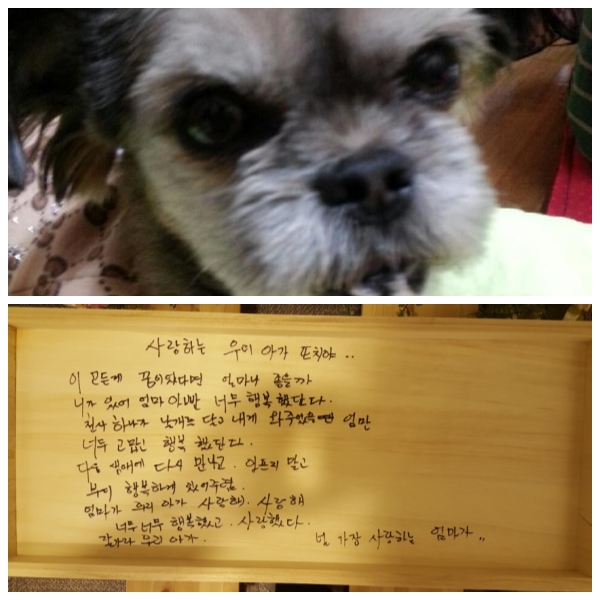 사랑하는 우리 아가 뽀치야..
이 모든게 꿈이라면 얼마나 좋을까
니가 있어 엄마 아빤 너무 행복했단다.
천사 하나가 날개를 달고 내게 와주었을땐 엄만
너무 고맙고 행복 했단다.
다음 생애에 다시 만나고. 아프지 말고
부디 행복하게 있어주렴.
엄마가 우리 아가 사랑해. 사랑해
너무너무 행복했고. 사랑했다.
잘가라 우리 아가.
널 가장 사랑하는 엄마가..